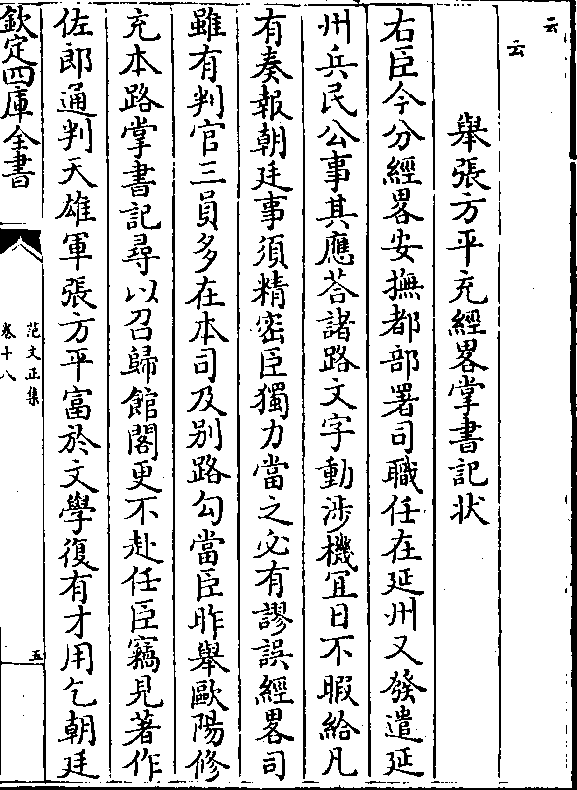 云
云
舉張方平充經畧掌書記狀
右臣今分經畧安撫都部署司職任在延州又發遣延
州兵民公事其應荅諸路文字動涉機冝日不暇給凡
有奏報朝廷事須精密臣獨力當之必有謬誤經畧司
雖有判官三員多在本司及别路勾當臣昨舉歐陽修
充本路掌書記尋以召歸館閣更不赴任臣竊見著作
佐郎通判天雄軍張方平富於文學復有才用乞朝廷
欽定四庫全書
范文正集
卷十八
五